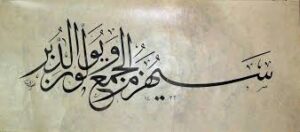 سيهزم الجمع ويولون الدبر